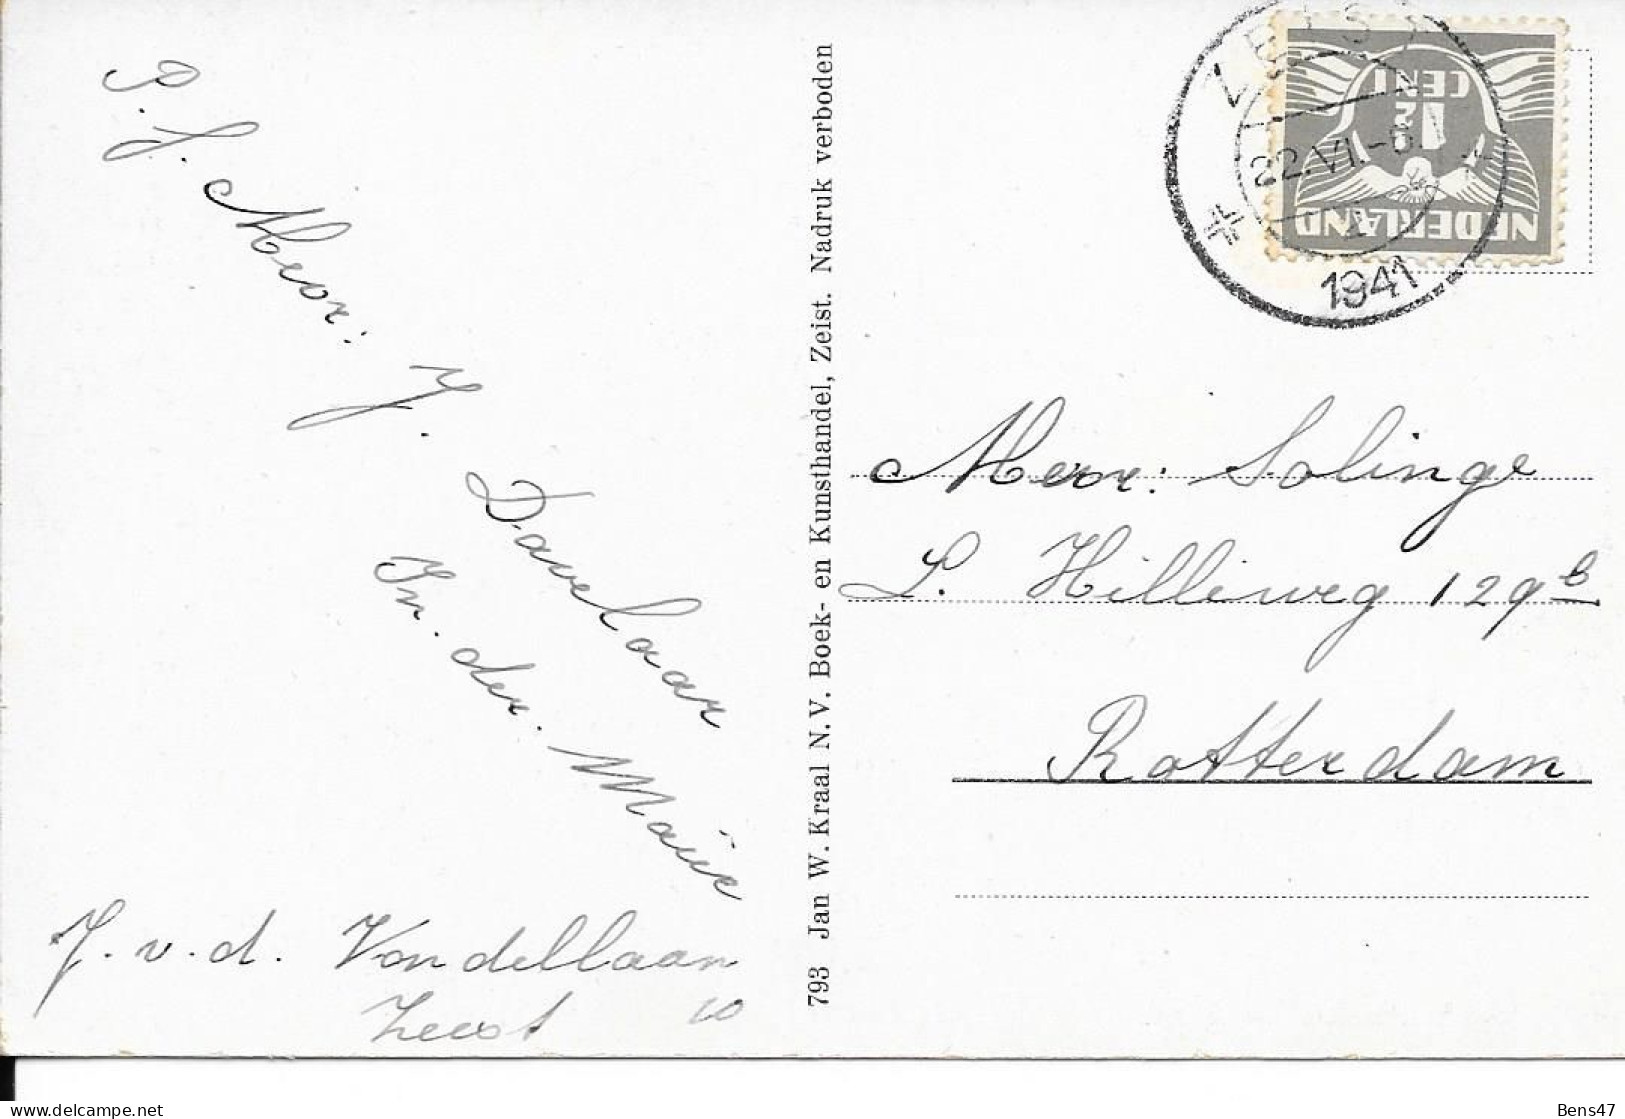 P. f. Mevr. J.
Davelaar
In. der. Maūr
J. v. d. Vondellaan
Zeist 10
793 Jan W. Kraal N. V. Boek- en Kunsthandel, Zeist. Nadruk verboden
ZEIST
22.VI.-6.
1941
1½
CENT
NEDERLAND
Mevr: Solinge
S. Hilliweg 129 b
Rotterdam
delcampe.net
Bens47